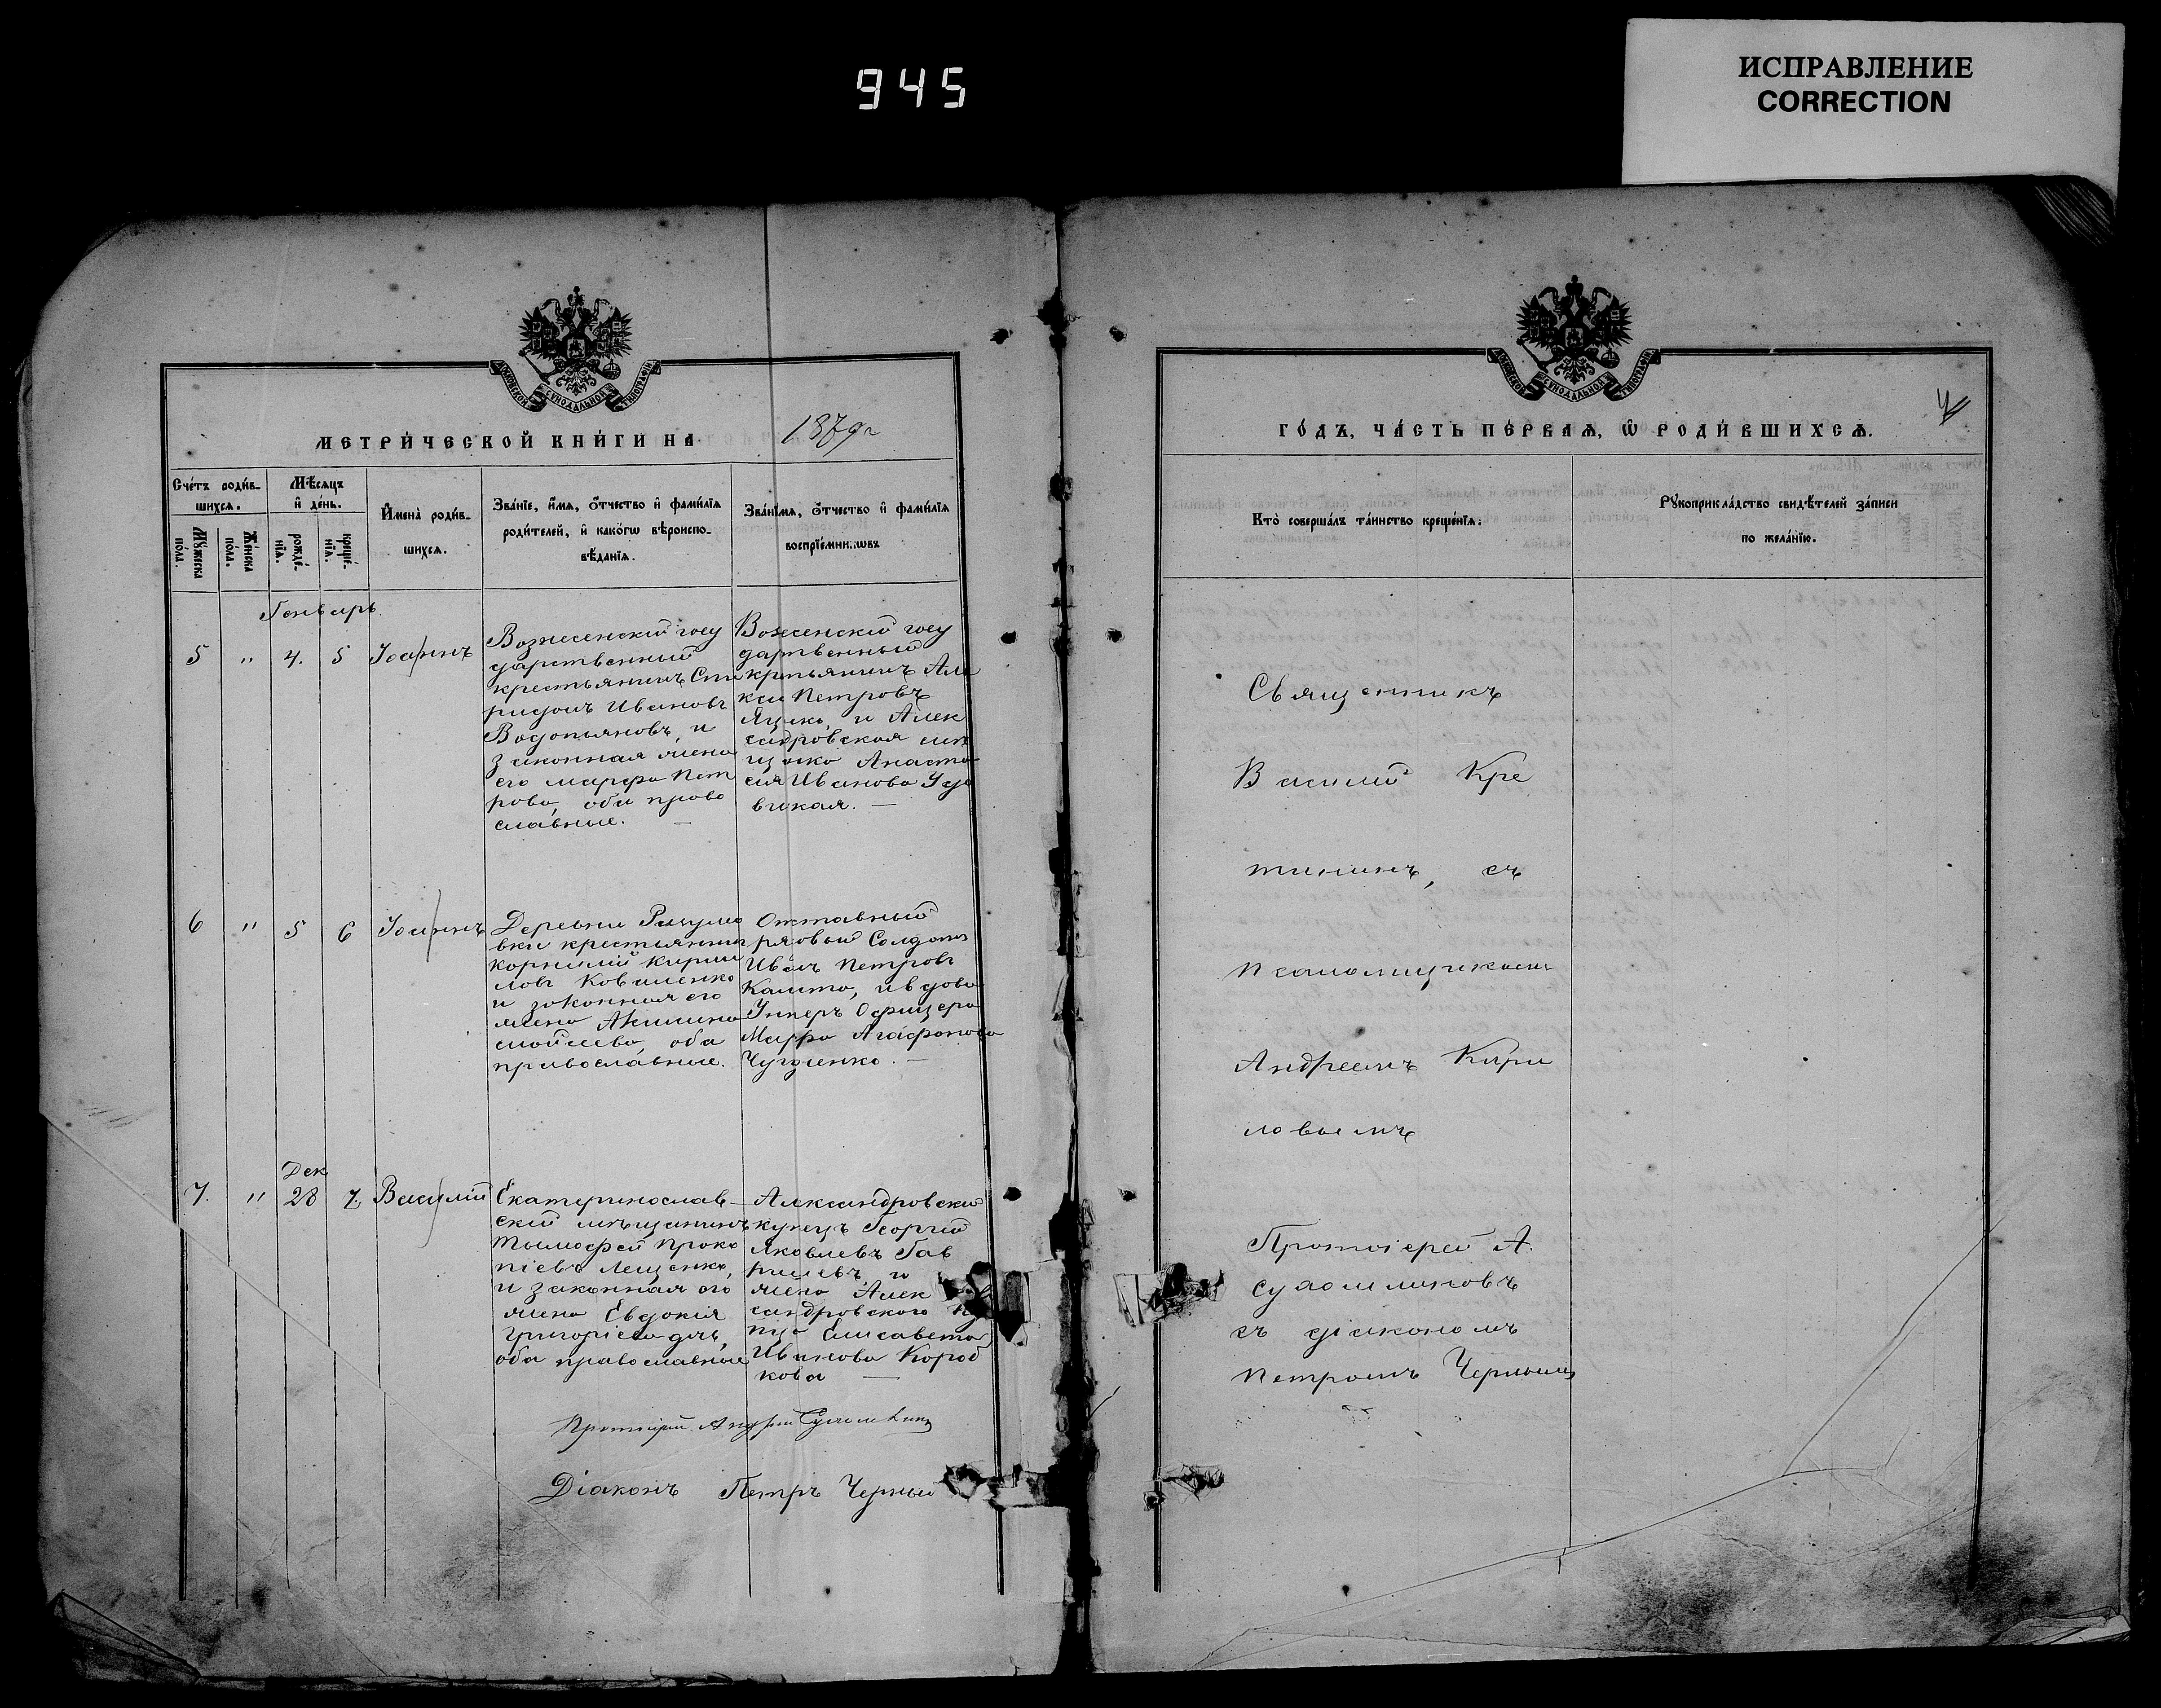 945
ИСПРАВЛЕНИЕ
CORRECTION
МОСКОВСКОЙ СѴНОДАЛЬНОЙ ТИПОГРАФІИ
МЕТРИ́ЧЕСКОЙ КНИ́ГИ НА 1879 г
Сче́тъ роди́в-
шихсѧ.
Мѣ́сяцъ
и҆ де́нь.
Мꙋ́жеска
по́ла.
Же́нска
пола.
рожде́-
нїѧ.
креще́-
нїѧ.
И҆мена̀ роди́в-
шихсѧ.
Зва́нїе, и҆́мѧ, ѻ҆́тчество и҆ фами́лїѧ
роди́телей, и҆ како́гѡ вѣроиспо-
вѣ́данїѧ.
Зва́нїмѧ, ѻ҆́тчество и҆ фами́лїѧ
воспрїе́мни ѡвъ
Генварь.
5 " 4. 5 Іоаннъ
Вознесенскій госу
дарственный
крестьянинъ Спи
ридонъ Ивановъ
Водопьяновъ, и
законная жена
его Марфа Пет
рова, оба право
славные. —
Возсенскій госу
дартвенный
кртьянинъ Але
ксей Петровъ
Яценко, и Алек
садровская мѣ
щанка Анаста
сія Иванова
вицкая. —
6 " 5 6 Іоаннъ
Деревни Разумо
вки крестьянинъ
Корнилій Кирил
ловъ Коваленко
и законная его
жена Акилина
Моисеева, оба
православные.
Отставный
рядовый Солдатъ
Иванъ Петровъ
Калита, и вдова
Унтеръ Офицера
Марфа Агафонова
—
Дек
7. " 28 7. Василій
Екатеринослав-
скій мѣщанинъ
Тимофей Проко
піевъ Лещенко,
и законная его
жена Евдокія
Григоріева дочь,
оба православные
Александровскій
купецъ Георгій
Яковлевъ Гав
рилевъ, и
жена Алек
сандровского ку
пца Елисавета
Иванова Короб
кова —
Протоіерей Андрей Сухомлиновъ
Діаконъ Петръ Черный
МОСКОВСКОЙ СѴНОДАЛЬНОЙ ТИПОГРАФІИ
4
ГО́ДЪ, ЧА́СТЬ ПЕ́РВАѦ, Ѡ҆ РОДИ́ВШИХСѦ.
Кто̀ соверша́лъ та́инство креще́нїѧ.
Рꙋкоприкла́дство свидѣ́телей за́писи
по жела́нїю.
Священникъ
Василій Кре
тининъ, съ
псаломщикомъ
Андреемъ Кири
ловымъ
Протоіерей А.
Сухомлиновъ
съ діакономъ
Петромъ Чернымъ